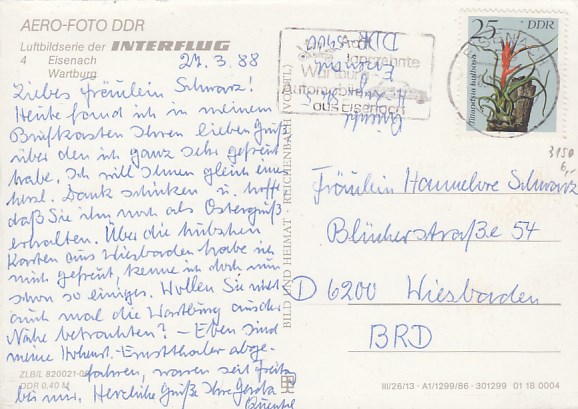 AERO-FOTO DDR
Luftbildserie der INTERFLUG
4 Eisenach
Wartburg
27.3.88
Liebes Fräulein Schwarz!
Heute fand ich in meinem
Briefkasten Ihren lieben Gruß
über den ich ganz sehr gefreut
habe. Ich will Ihnen gleich einen
herzl. Dank schicken u. hoffe
daß Sie ihn noch als Ostergruß
erhalten. Über die hübschen
Karten aus Wiesbaden habe ich
mich gefreut, kenne ich doch nun
schon so einiges. Wollen Sie nicht
auch mal die Wartburg aus der
Nähe betrachten? – Eben sind
meine Hohenst.-Ernstthaler abge-
fahren, waren seit Freitg
bei mir. Herzliche Grüße Ihre Gerda
Quentel
ZLB/L 820021-0
DDR 0,40 M
BILD UND HEIMAT · REICHENBACH (VOGTL)
DDR
Wartburg
aus Eisenach
25 DDR
EISENACH
3150
6,-
Fräulein Hannelore Schwarz
Blücherstraße 54
D 6200 Wiesbaden
BRD
III/26/13 · A1/1299/86 · 301299 01 18 0004